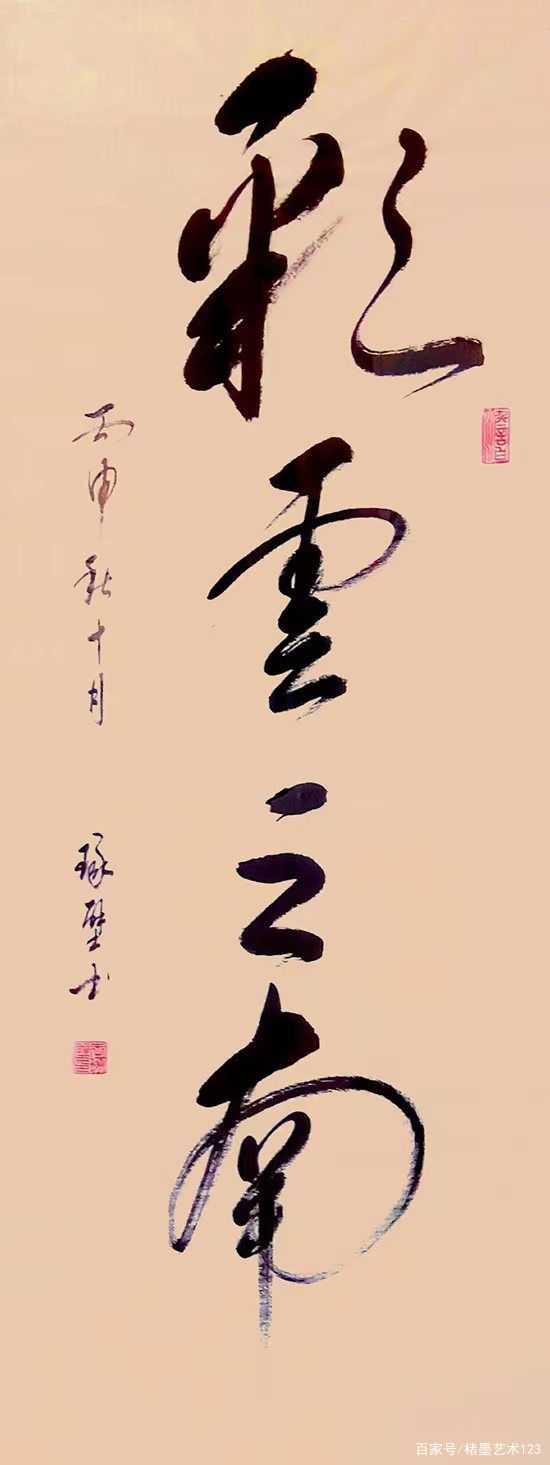 彩雲之南
丙申秋十月
琢璧书
百家号/楮墨艺术123